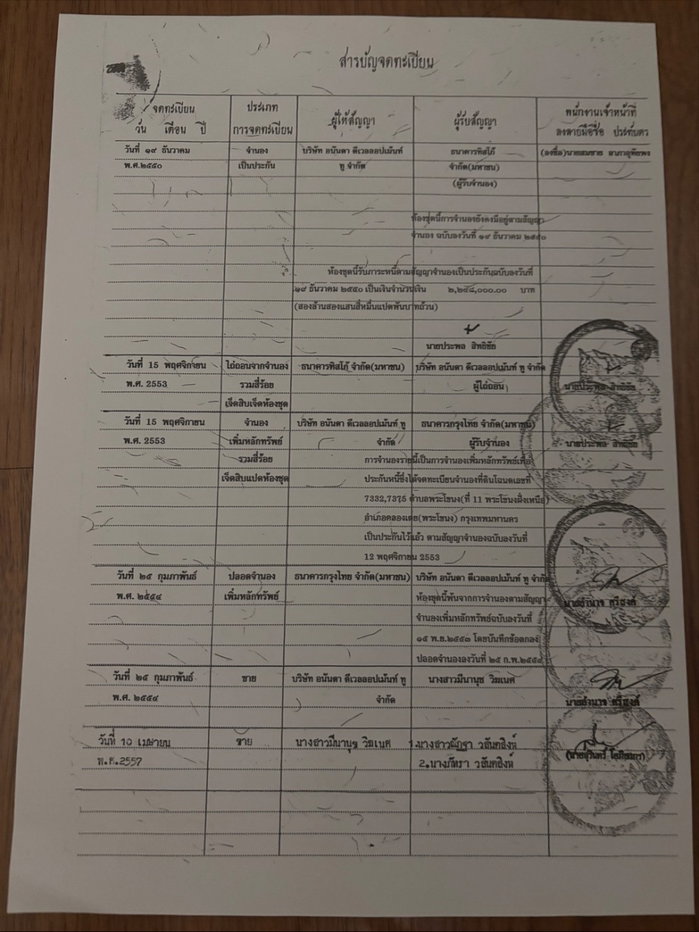 สารบัญจดทะเบียน
จดทะเบียน
วัน เดือน ปี
ประเภท
การจดทะเบียน
ผู้ให้สัญญา
ผู้รับสัญญา
พนักงานเจ้าหน้าที่
ลงลายมือชื่อ ประทับตรา
วันที่ ๑๙ ธันวาคม
พ.ศ.๒๕๕๐
จำนอง
เป็นประกัน
บริษัท อนันดา ดีเวลลอปเม้นท์
ทู จำกัด
ธนาคารทิสโก้
จำกัด(มหาชน)
(ผู้รับจำนอง)
(ลงชื่อ)นายสมชาย
ห้องชุดนี้การจำนองยังคงมีอยู่ตามสัญญา
จำนอง ฉบับลงวันที่ ๑๙ ธันวาคม ๒๕๕๐
ห้องชุดนี้รับภาระหนี้ตามสัญญาจำนองเป็นประกันฉบับลงวันที่
๑๙ ธันวาคม ๒๕๕๐ เป็นเงินจำนวนเงิน ๒,๒๔๘,๐๐๐.๐๐ บาท
(สองล้านสองแสนสี่หมื่นแปดพันบาทถ้วน)
นายประพล สิทธิชัย
วันที่ 15 พฤศจิกายน
พ.ศ. 2553
ไถ่ถอนจากจำนอง
รวมสี่ร้อย
เจ็ดสิบเจ็ดห้องชุด
ธนาคารทิสโก้ จำกัด(มหาชน)
บริษัท อนันดา ดีเวลลอปเม้นท์ ทู จำกัด
ผู้ไถ่ถอน
นายประพล สิทธิชัย
วันที่ 15 พฤศจิกายน
พ.ศ. 2553
จำนอง
เพิ่มหลักทรัพย์
รวมสี่ร้อย
เจ็ดสิบแปดห้องชุด
บริษัท อนันดา ดีเวลลอปเม้นท์ ทู
จำกัด
ธนาคารกรุงไทย จำกัด(มหาชน)
ผู้รับจำนอง
นายประพล สิทธิชัย
การจำนองรายนี้เป็นการจำนองเพิ่มหลักทรัพย์เพื่อ
ประกันหนี้ซึ่งได้จดทะเบียนจำนองที่ดินโฉนดเลขที่
7332,7375 ตำบลพระโขนง(ที่ 11 พระโขนงฝั่งเหนือ)
อำเภอคลองเตย(พระโขนง) กรุงเทพมหานคร
เป็นประกันไว้แล้ว ตามสัญญาจำนองฉบับลงวันที่
12 พฤศจิกายน 2553
วันที่ ๒๕ กุมภาพันธ์
พ.ศ. ๒๕๕๔
ปลอดจำนอง
เพิ่มหลักทรัพย์
ธนาคารกรุงไทย จำกัด(มหาชน)
บริษัท อนันดา ดีเวลลอปเม้นท์ ทู จำกัด
ห้องชุดนี้พ้นจากการจำนองตามสัญญา
จำนองเพิ่มหลักทรัพย์ฉบับลงวันที่
๑๕ พ.ย.๒๕๕๓ โดยบันทึกข้อตกลง
ปลอดจำนองลงวันที่ ๒๕ ก.พ.๒๕๕๔
นายอำนาจ ศรีสงค์
วันที่ ๒๕ กุมภาพันธ์
พ.ศ. ๒๕๕๔
ขาย
บริษัท อนันดา ดีเวลลอปเม้นท์ ทู
จำกัด
นางสาวมีนานุช วิมเนศ
นายอำนาจ ศรีสงค์
วันที่ 10 เมษายน
พ.ศ.2557
ขาย
นางสาวมีนานุช วิมเนศ
1.นางสาวณัฏฐา วสันตสิงห์
2.นางภัทรา วสันตสิงห์